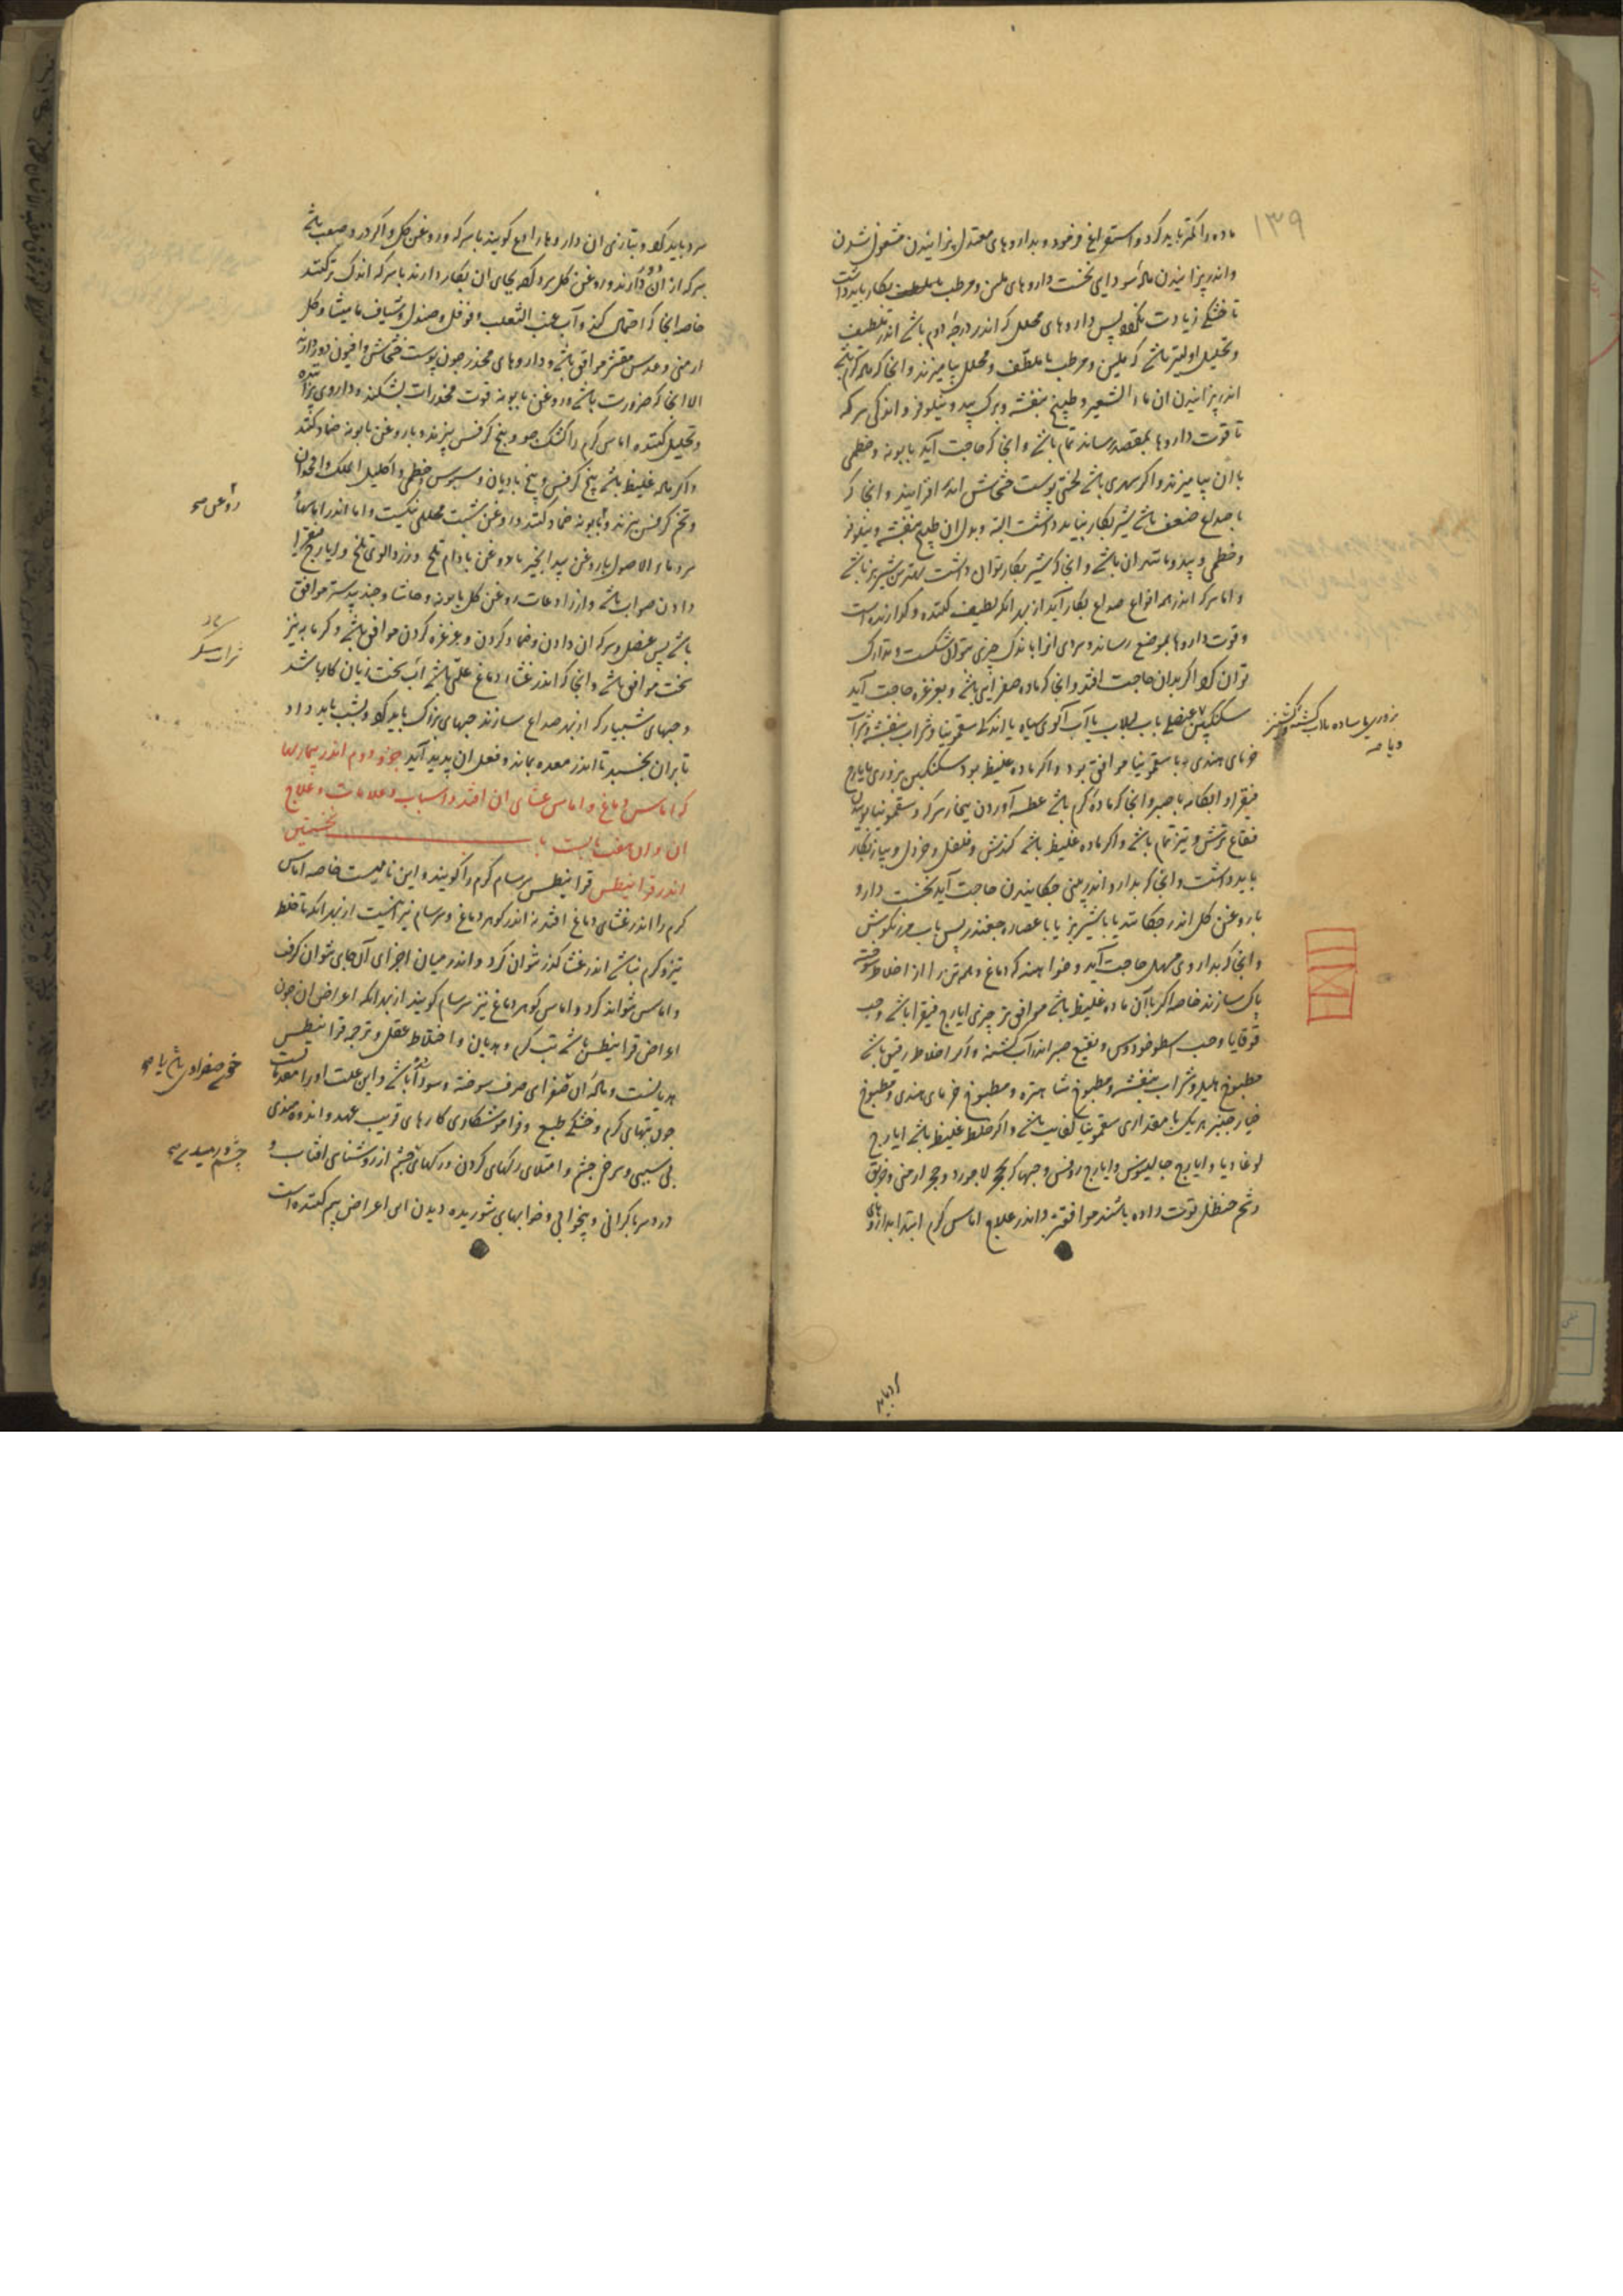 ۱۳۹
ماده را کمتر باید کرد و استفراغ فرمود و بداروهای معتدل پزانیدن مشغول شدن
و اندر پزانیدن ماده سودایی نخست داروهای ملین و مرطب با ملطف بکار باید داشت
تا خشکی زیادت نکند پس داروهای محلل که اندر درجه دوم باشد اندر تلطیف
و تحلیل اولیتر باشد که ملین و مرطب با ملطف و محلل بیامیزند و انجا که ماده گرم باشد
اندر پزانیدن ان ماء الشعیر و طبیخ بنفشه و برک بید و نیلوفر و اندکی سرکه
تا قوت داروها بمقصد رساند تمام باشد و انجا که حاجت آید بابونه و خطمی
با ان بیامیزند و اگر سهری باشد لختی پوست خشخاش اندر افزایند و انجا که
با صداع ضعف باشد شیر بکار نباید داشت البته و بدل ان طبیخ بنفشه و نیلوفر
و خطمی و بید و مانند ان باشد و انجا که شیر بکار توان داشت بهترین شیر بز باشد
و اما سرکه اندر همه انواع صداع بکار آید از بهر انکه لطیف کننده و گوارنده است
و قوت داروها بموضع رساند و سردی او را باندک چیزی بتوان شکست و تدارک
توان کرد اگر بدان حاجت افتد و انجا که ماده صفرایی باشد و بغرغره حاجت آید
سکنکبین عنصلی باب لبلاب یا آب آلوی سیاه یا اندکی سقمونیا و شراب بنفشه و شراب
خرمای هندی با سقمونیا موافق بود و اگر ماده غلیظ بود سکنکبین بزوری با ایارج
فیقرا و ابکامه با صبر و انجا که ماده گرم باشد عطسه آوردن ببخار سرکه و سقمونیا بوییدن
فقاع ترش و تیز تمام باشد و اگر ماده غلیظ باشد کندش و فلفل و خردل و پیاز بکار
باید داشت و انجا که بدارو اندر بینی چکانیدن حاجت آید نخست دارو
با روغن گل اندر چکانند یا با شیر بز یا با عصاره چغندر پس باب مرزنکوش
و انجا که بداروی مسهل حاجت آید و خواهند که دماغ و همه تن را از اخلاط سوخته
پاک سازند خاصه اگر با آن ماده غلیظ باشد موافق تر چیزی ایارج فیقرا باشد و حب
قوقایا و حب اسطوخودوس و نقیع صبر اندر آب کشنه و اگر اخلاط رقیق باشد
مطبوخ هلیله و شراب بنفشه و مطبوخ شاهتره و مطبوخ خرمای هندی و مطبوخ
خیارچنبر هر یک با مقداری سقمونیا کفایت باشد و اگر خلط غلیظ باشد ایارج
لوغادیا و ایارج جالینوس و ایارج روفس و حبها که بحجر لاجورد و حجر ارمنی و خربق
و شحم حنظل قوت داده باشند موافقتر و اندر علاج اماس گرم ابتدا بداروهای
سرد باید کرد و بتازی ان داروها را رادع گویند با سرکه و روغن گل و اگر درد صعب باشد
سرکه از ان دور دارند و روغن گل سرد کرده بجای ان بکار دارند یا سرکه اندک تر کنند
خاصه انجا که احتمال کند و آب عنب الثعلب و فوفل و صندل و شیاف مامیثا و گل
ارمنی و عدس مقشر موافق باشد و داروهای مخدر چون پوست خشخاش و افیون دور دارند
الا انجا که ضرورت باشد و روغن بابونه قوت مخدرات بشکند و داروی پزاننده
و تحلیل کننده اماس گرم را کشک جو و بیخ کرفس بپزند و با روغن بابونه ضماد کنند
و اگر ماده غلیظ باشد بیخ کرفس و بیخ بادیان و سبوس و خطمی و اکلیل الملک و اقحوان
و تخم کرفس بپزند و بابونه ضماد کنند و روغن شبت محللی نیکست و اما اندر اماسهاء
سرد ماء الاصول با روغن بید انجیر یا روغن بادام تلخ و زردالوی تلخ و ایارج فیقرا
دادن صواب باشد و از رادعات روغن گل بابونه و حاشا و جندبیدستر موافق
باشد پس عنصل و سرکه ان دادن و ضماد کردن و غرغره کردن موافق باشد و گرمابه نیز
سخت موافق باشد و انجا که اندر غشاء دماغ علتی باشد اب سخت زیان کار باشد
و حبهای شبیار که از بهر صداع سازند حبهای بزرک باید کرد و بشب باید داد
تا بران بخسبد تا اندر معده بماند و فعل ان پدید آید جزو دوم اندر بیمارییها
که اماس دماغ و اماس غشای ان افتد و اسباب و علامات و علاج
ان و ان هفت بابست باب نخستین
اندر قرانیطس قرانیطس سرسام گرم را گویند و این نامیست خاصه اماس
گرم را اندر غشای دماغ افتد نه اندر گوهر دماغ و سرسام نیز اینست از بهر انکه تا خلط
تیز و گرم نباشد اندر غشا گذر نتوان کرد و اندر میان اجزای آن جای نتوان گرفت
و اماس نتواند کرد و اماس گوهر دماغ نیز سرسام گویند از بهر انکه اعراض ان چون
اعراض قرانیطس باشد تب گرم و هذیان و اختلاط عقل و ترجمه قرانیطس
هذیانست و ماده ان صفرای صرف سوخته و سودا باشد و این علت او را مقدماتست
چون تبهای گرم و خشکی طبع و فراموشکاری کارهای قریب عهد و اندوه مندی
بی سببی و سرخی چشم و امتلای رگهای گردن و رگهای چشم از روشنای افتاب و
درد سر با گرانی و بیخوابی و خوابهای شوریده دیدن این اعراض بیم کننده است